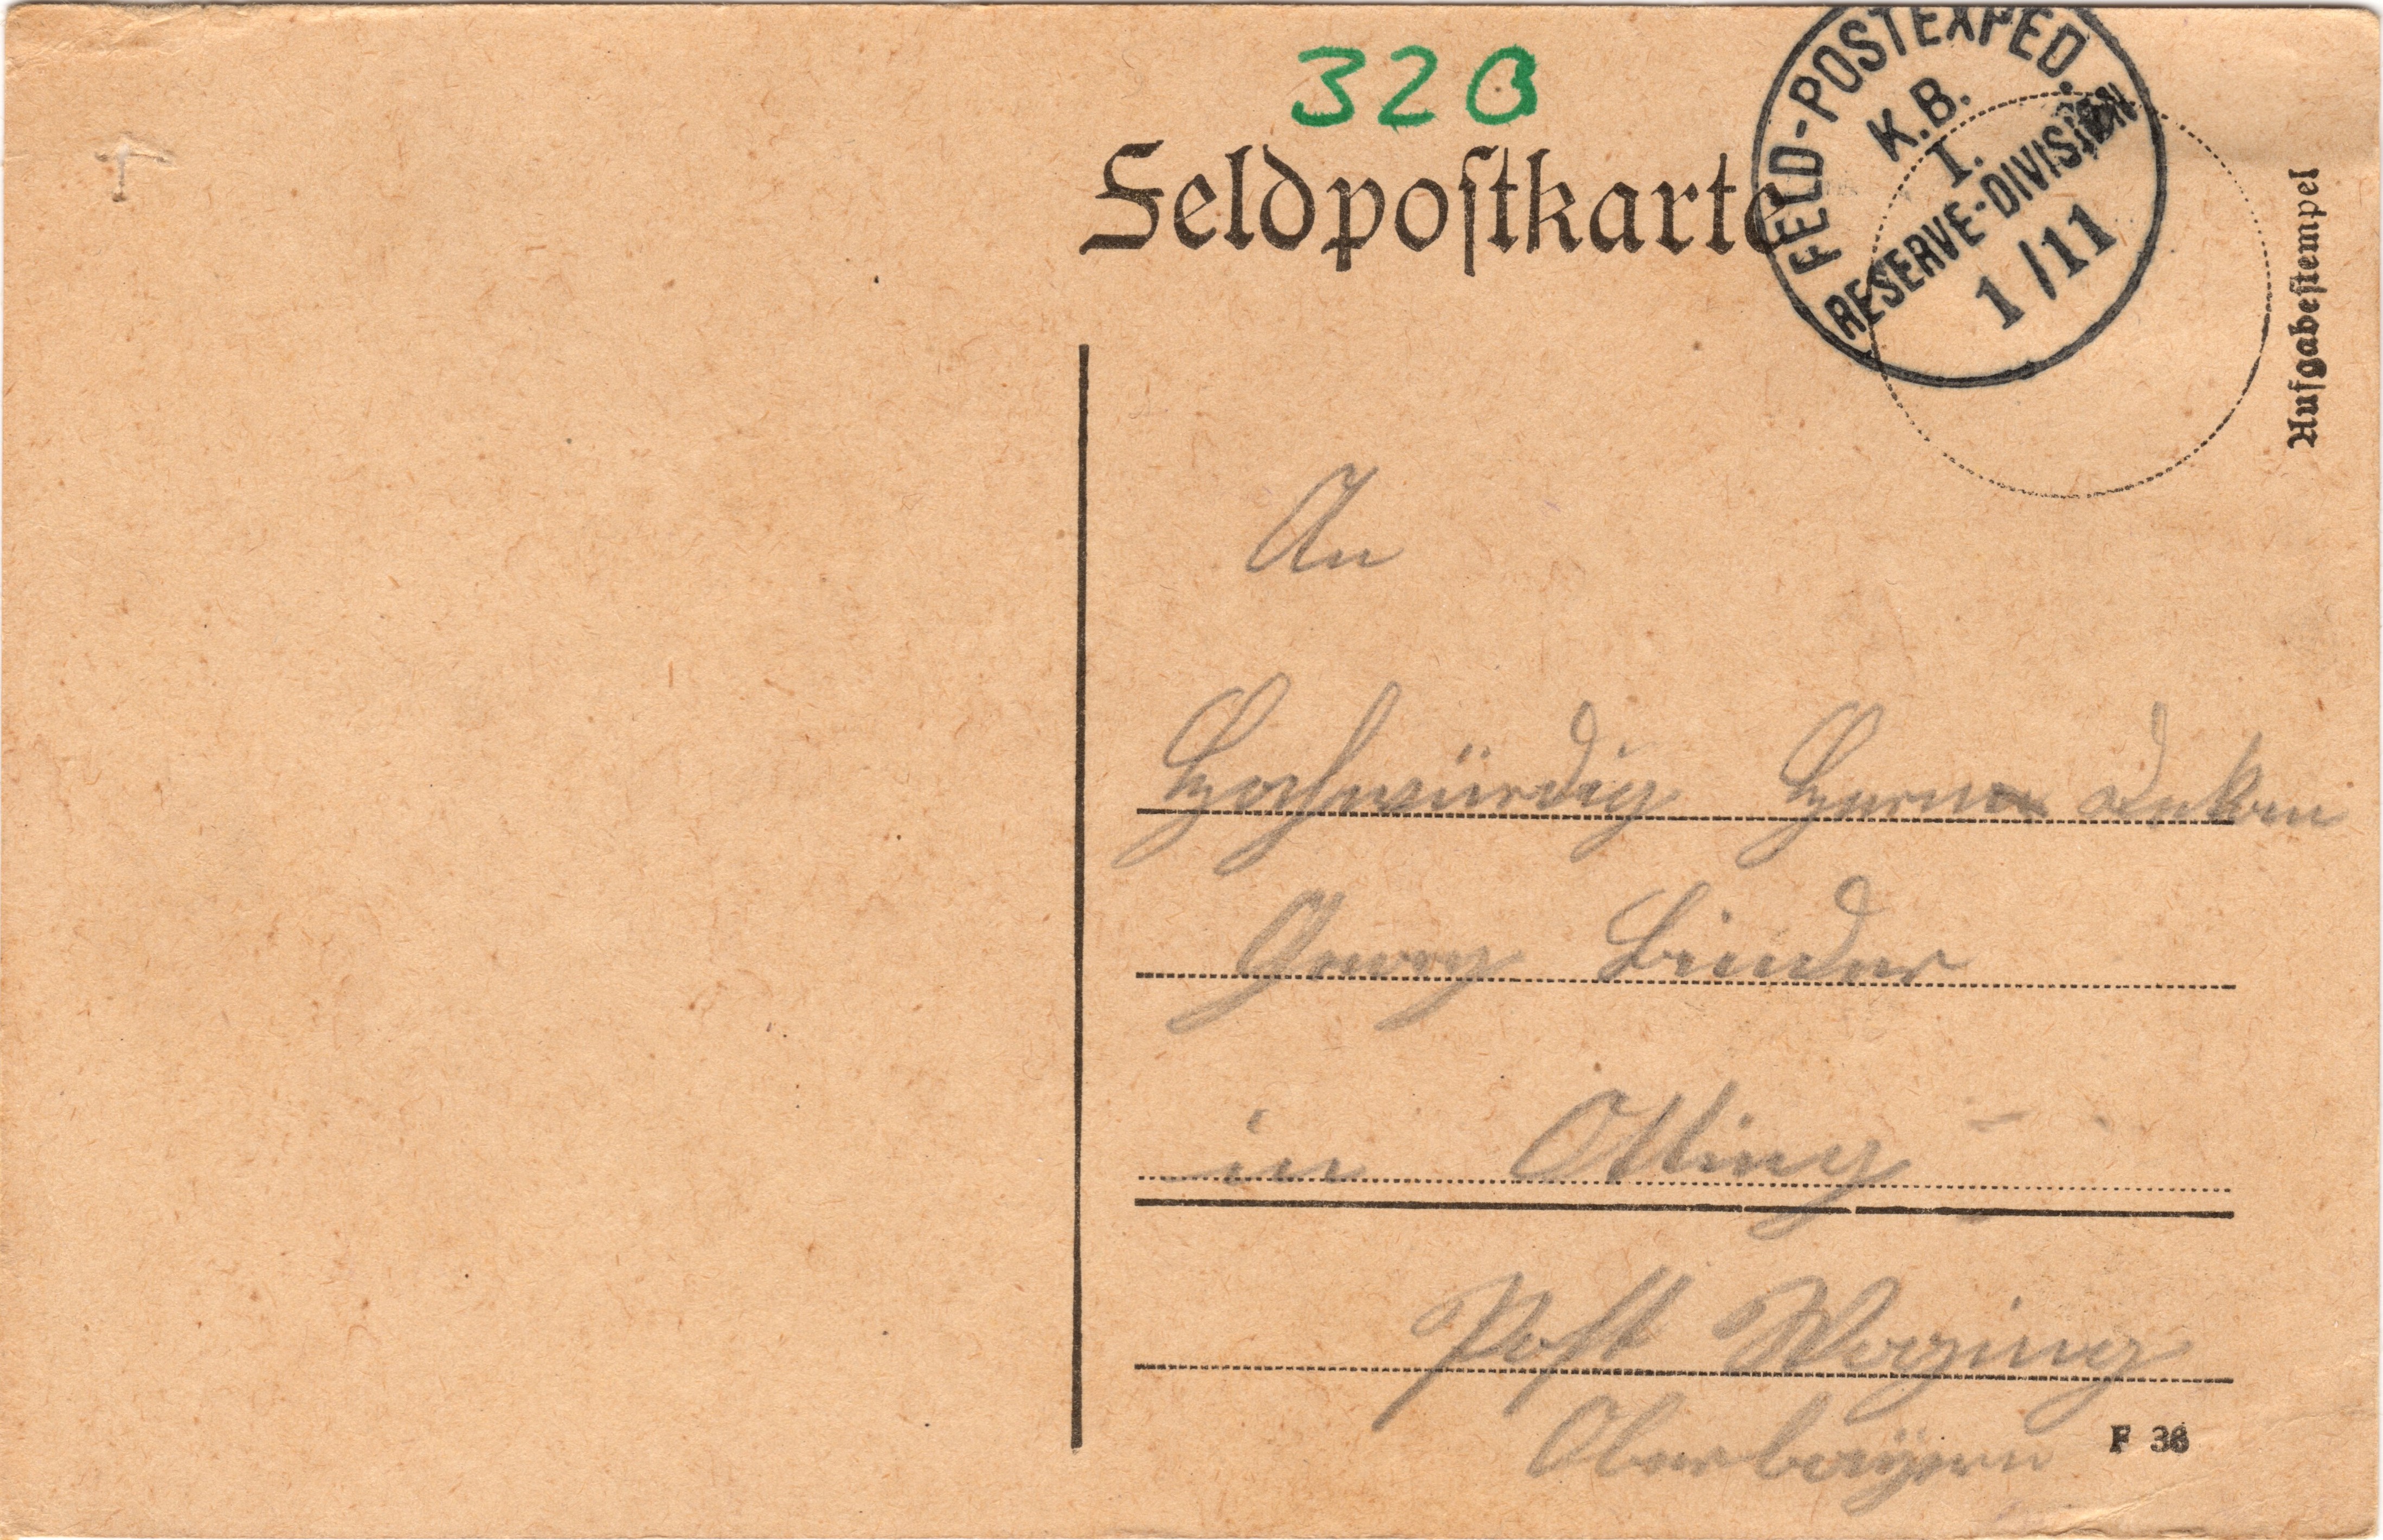 320
Feldpostkarte
FELD-POSTEXPED.
K.B.
I.
RESERVE-DIVISION
1/11
Aufgabestempel
An
Hochwürdig Herrn Dekan
Georg Binder
in Otting
Post Waging
Oberbayern
F 36